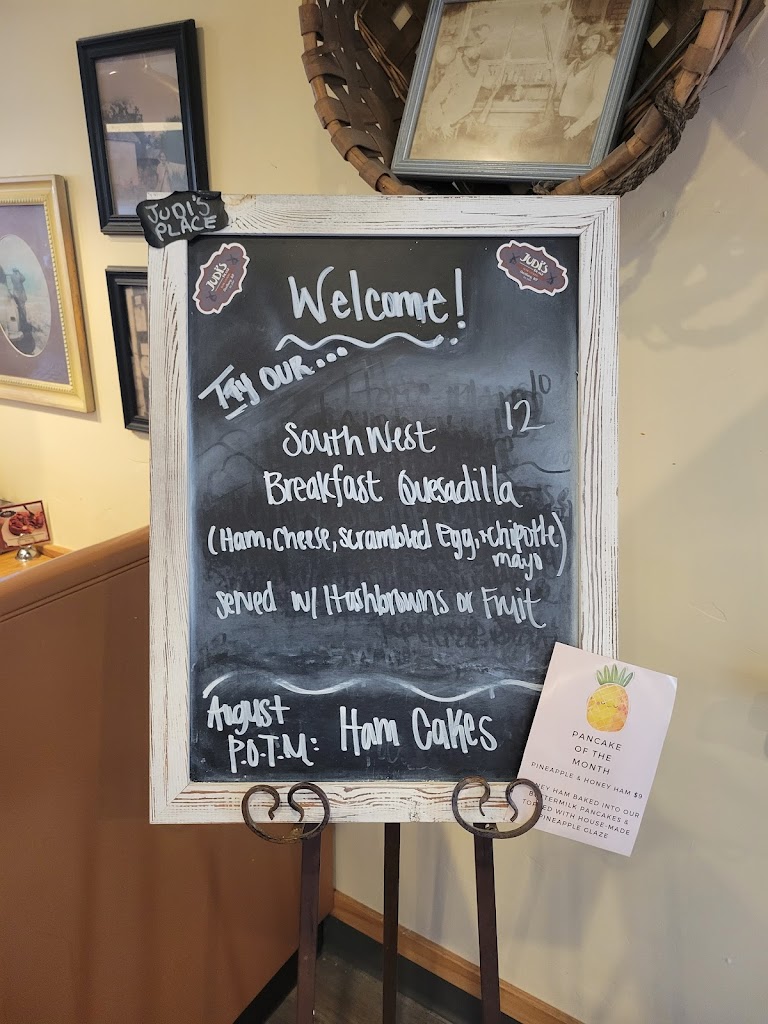 JUDI'S
PLACE
JUDI'S
JUDI'S
Welcome!
Try our...
12
South West
Breakfast Quesadilla
(Ham, Cheese, scrambled Egg, + chipotle
mayo)
served w/ Hashbrowns or Fruit
August
P.O.T.M: Ham Cakes
PANCAKE
OF THE
MONTH
PINEAPPLE & HONEY HAM $9
HAM BAKED INTO OUR
BUTTERMILK PANCAKES &
WITH HOUSE-MADE
PINEAPPLE GLAZE